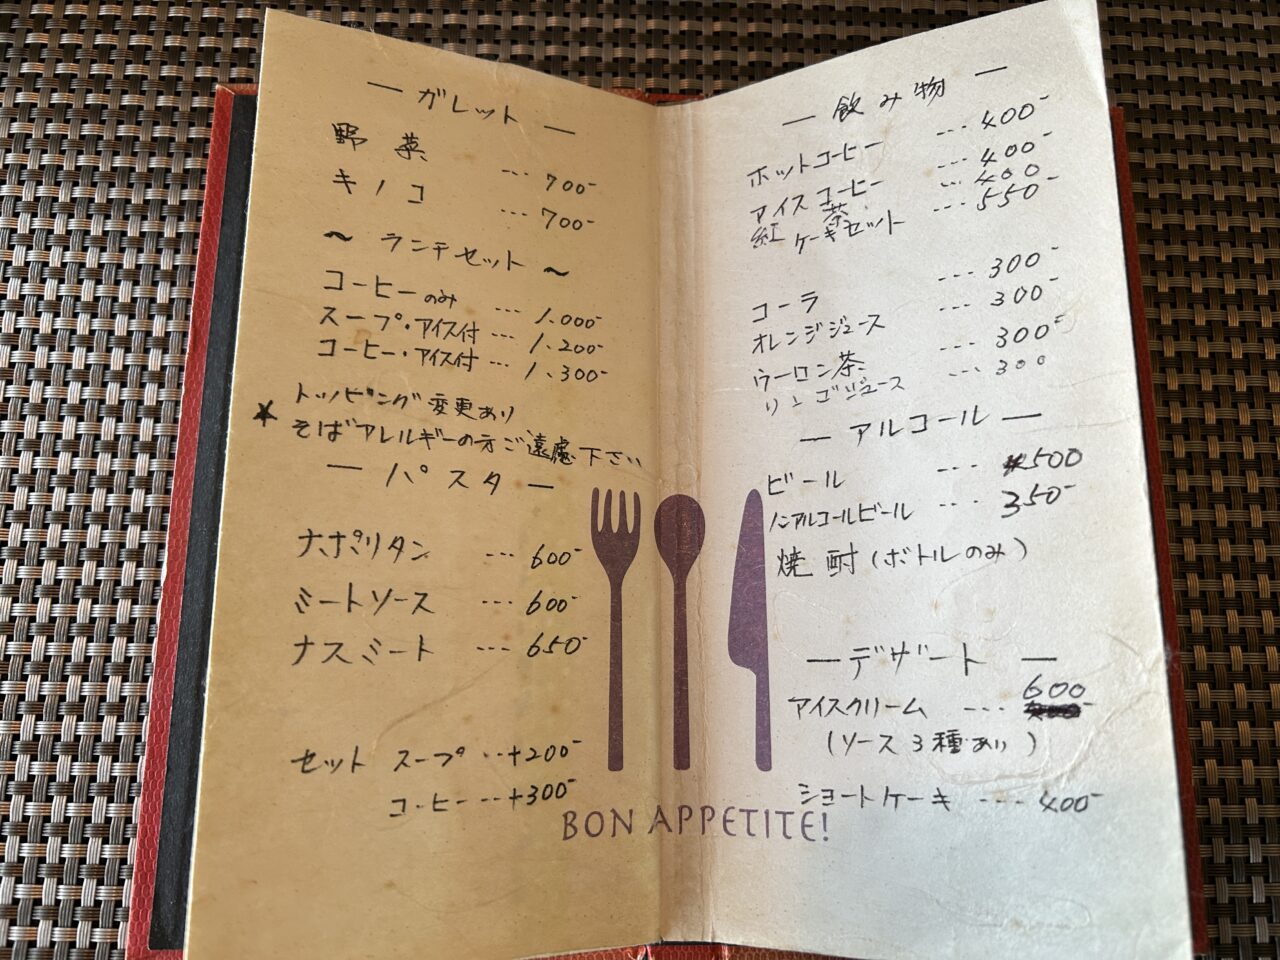 ― ガレット ―
野菜 ... 700-
キノコ ... 700-
～ ランチセット ～
コーヒーのみ ... 1,000-
スープ・アイス付 ... 1,200-
コーヒー・アイス付 ... 1,300-
トッピング変更あり
★ そばアレルギーの方ご遠慮下さい
― パスタ ―
ナポリタン ... 600-
ミートソース ... 600-
ナスミート ... 650-
セット スープ ... +200-
コーヒー ... +300-
― 飲み物 ―
ホットコーヒー ... 400-
アイスコーヒー ... 400-
紅茶 ... 400
ケーキセット ... 550-
コーラ ... 300-
オレンジジュース ... 300-
ウーロン茶 ... 300-
リンゴジュース ... 300
― アルコール ―
ビール ... 500
ノンアルコールビール ... 350-
焼酎(ボトルのみ)
― デザート ―
アイスクリーム ... 600
(ソース3種あり)
ショートケーキ ... 400-
BON APPETITE!